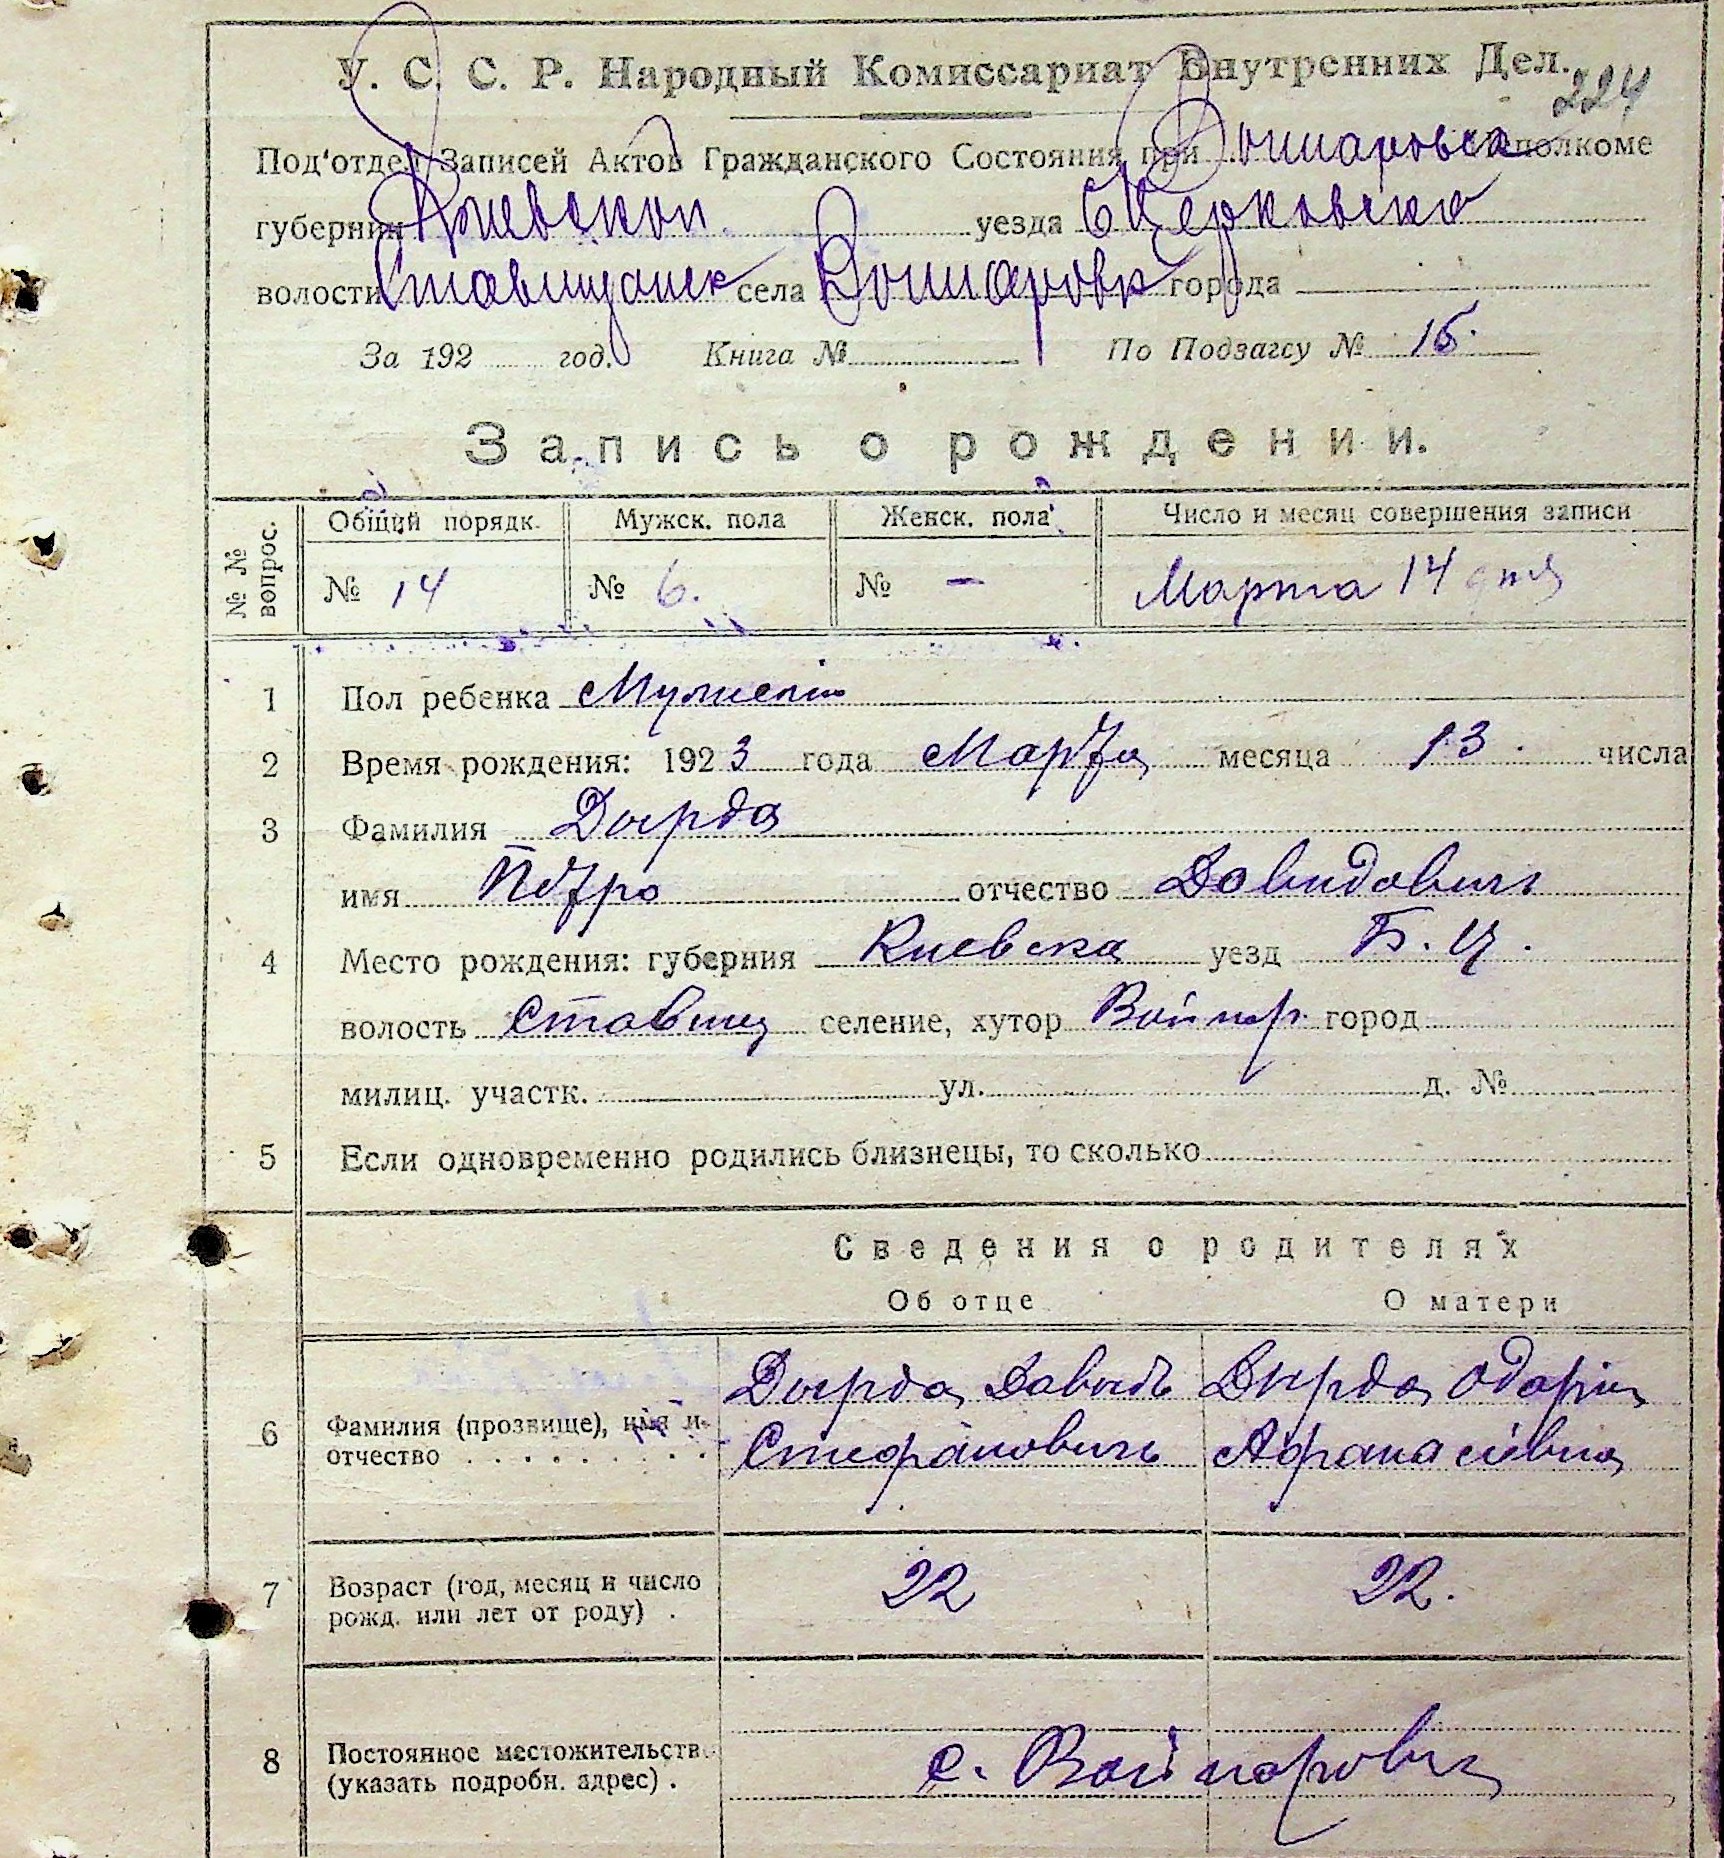 У. С. С. Р. Народный Комиссариат Внутренних Дел.
224
Под'отдел Записей Актов Гражданского Состояния при Исполкоме
губернии Киевской уезда БЦерковско
волости села города
За 192 год. Книга № По Подзагсу № 15.
Запись о рождении.
№ № вопрос. Общий порядк. Мужск. пола Женск. пола Число и месяц совершения записи
№ 14 № 6. № – Марта 14 дня
1 Пол ребенка
2 Время рождения: 1923 года Марта месяца 13. числа
3 Фамилия Дырда
имя Петро отчество Давидович
4 Место рождения: губерния Киевска уезд Б. Ц.
волость Ставищ селение, хутор город
милиц. участк. ул. д. №
5 Если одновременно родились близнецы, то сколько
Сведения о родителях
Об отце О матери
6 Фамилия (прозвище), имя и отчество
Дырда Давыдъ Дырда Одарія
Стефановичъ Афанасіевна
7 Возраст (год, месяц и число рожд. или лет от роду) . 22 22.
8 Постоянное местожительств. (указать подробн. адрес) .